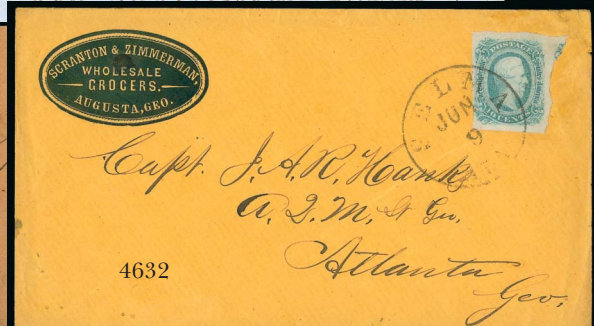 SCRANTON & ZIMMERMAN,
WHOLESALE
GROCERS.
AUGUSTA, GEO.
POSTAGE
CENTS
SELMA
JUN
9
Capt. J. A. R. Hanks
A. Q. M.
Atlanta
Geo.
4632